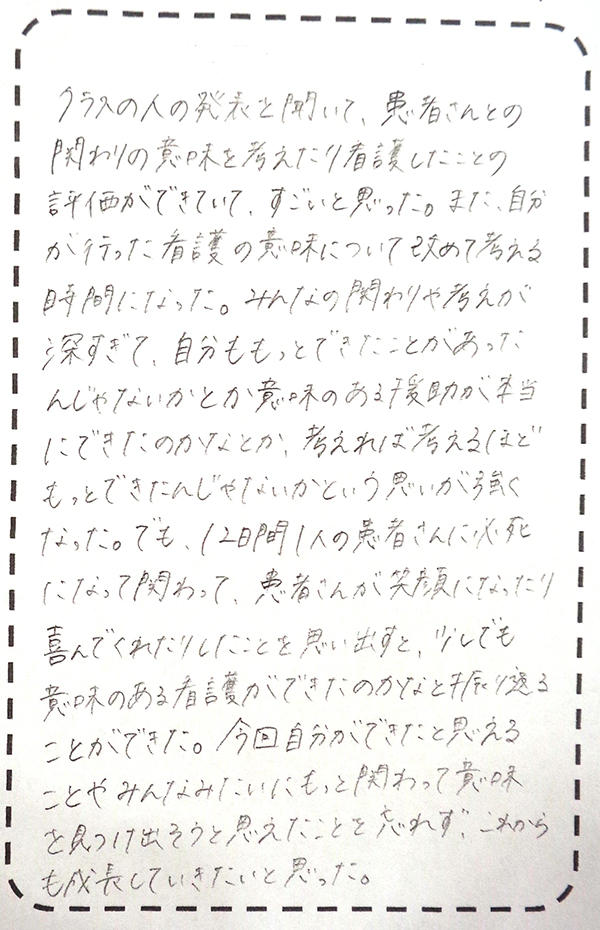 クラスの人の発表を聞いて、患者さんとの
関わりの意味を考えたり看護したことの
評価ができていて、すごいと思った。また、自分
が行った看護の意味について改めて考える
時間になった。みんなの関わりや考えが
深すぎて、自分ももっとできたことがあった
んじゃないかとか意味のある援助が本当
にできたのかなとか、考えれば考えるほど
もっとできたんじゃないかという思いが強く
なった。でも、12日間1人の患者さんに必死
になって関わって、患者さんが笑顔になったり
喜んでくれたりしたことを思い出すと、少しでも
意味のある看護ができたのかなと振り返る
ことができた。今回自分ができたと思える
ことやみんなみたいにもっと関わって意味
を見つけ出そうと思えたことを忘れず、これから
も成長していきたいと思った。